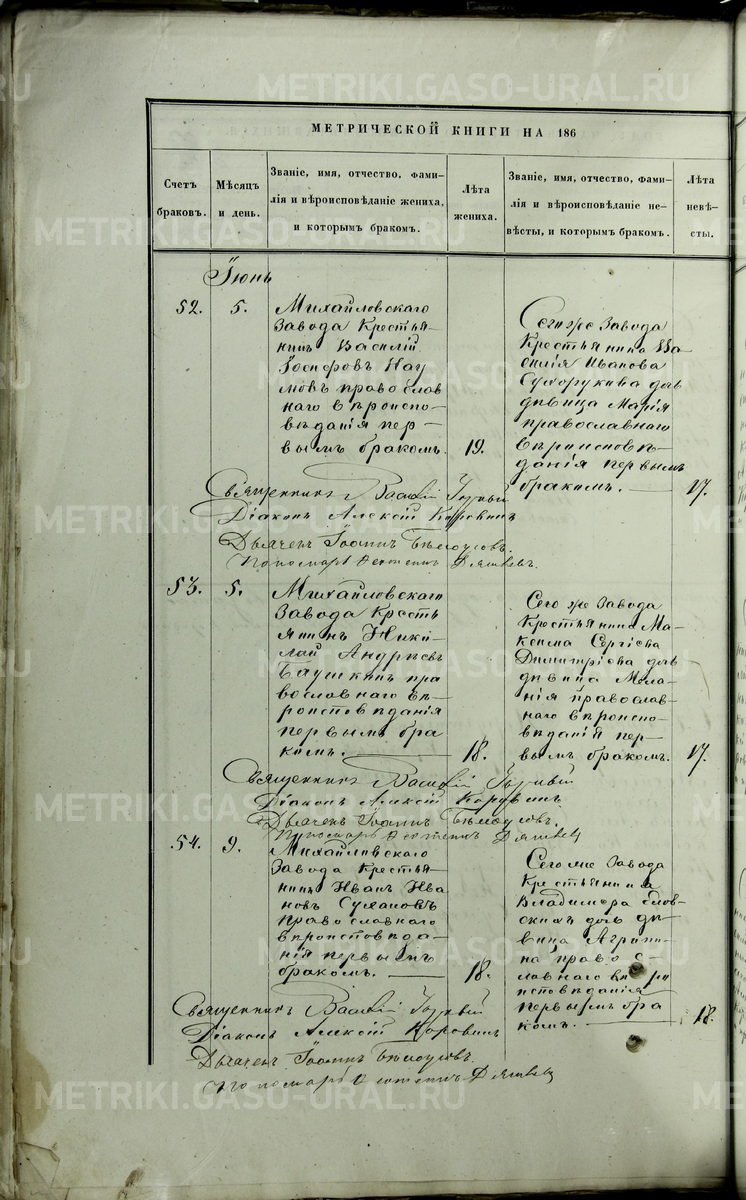 МЕТРИЧЕСКОЙ КНИГИ НА 186
Счетъ браковъ.
Мѣсяцъ и день.
Званіе, имя, отчество, фами-
лія и вѣроисповѣданіе жениха,
и которымъ бракомъ.
Лѣта жениха.
Званіе, имя, отчество, фами-
лія и вѣроисповѣданіе не-
вѣсты, и которымъ бракомъ.
Лѣта невѣ-
сты.
Іюнь
52.
5.
Михайловскаго
Завода Крестья-
нинъ Василій
Іосифовъ Нау
мовъ православ
наго вѣроиспо-
вѣданія пер-
вымъ бракомъ.
19.
Сегоже Завода
Крестьянина Ва
силія Иванова
Сухорукова доч
дѣвица Марія
православнаго
вѣроисповѣ-
данія первымъ
бракомъ.
17.
Священникъ Василій
Діаконъ Алексій Коровинъ
Дьячекъ Іоаннъ Бѣлоусовъ.
Пономарь
53.
5.
Михайловскаго
Завода Кресть
янинъ Нико
лай Андреевъ
пра
вославнаго вѣ
роисповѣданія
первымъ бра
комъ.
18.
Сего же Завода
Крестьянина Ма-
ксима Сергіева
Димитріева доч
дѣвица Мела-
нія православ-
наго вѣроиспо-
вѣданія пер-
вымъ бракомъ.
17.
Священникъ Василій
Діаконъ Алексій Коровинъ
Дьячекъ Іоаннъ Бѣлоусовъ.
Пономарь
54.
9.
Михайловскаго
Завода Крестья-
нинъ Иванъ Ива
новъ
православнаго
вѣроисповѣда-
нія первымъ
бракомъ.
18.
Сегоже Завода
Крестьянина
Владимера
дѣ
вица Агрипи
на право с-
лавнаго вѣро
исповѣданія
первымъ бра
комъ.
18.
Священникъ Василій
Діаконъ Алексій Коровинъ
Дьячекъ Іоаннъ Бѣлоусовъ.
Пономарь
METRIKI.GASO-URAL.RU